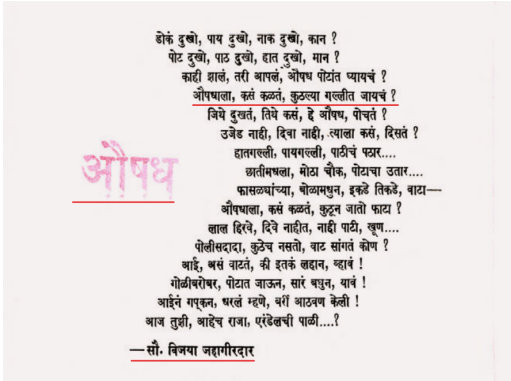 औषध
डोकं दुखो, पाय दुखो, नाक दुखो, कान ?
पोट दुखो, पाठ दुखो, हात दुखो, मान ?
काही झालं, तरी आपलं, औषध पोटांत घ्यायचं ?
औषधाला, कसं कळतं, कुठल्या गल्लीत जायचं ?
जिथे दुखतं, तिथे कसं, हे औषध, पोचतं ?
उजेड नाही, दिवा नाही, त्याला कसं, दिसतं ?
हातगल्ली, पायगल्ली, पाठीचं पठार....
छातीमधला, मोठा चौक, पोटाचा उतार....
फासळ्यांच्या, बोळामधुन, इकडे तिकडे, वाटा—
औषधाला, कसं कळतं, कुठून जातो फाटा ?
लाल हिरवे, दिवे नाहीत, नाही पाटी, खूण....
पोलीसदादा, कुठेच नसतो, वाट सांगतं कोण ?
आई, असं वाटतं, की इतकं लहान, व्हावं !
गोळीबरोबर, पोटात जाऊन, सारं बघुन, यावं !
आईनं गपकन, धरलं म्हणे, बरीं आठवण केली !
आज तुझी, आहेच राजा, एरंडेलची पाळी....?
—सौ. विजया जहागीरदार